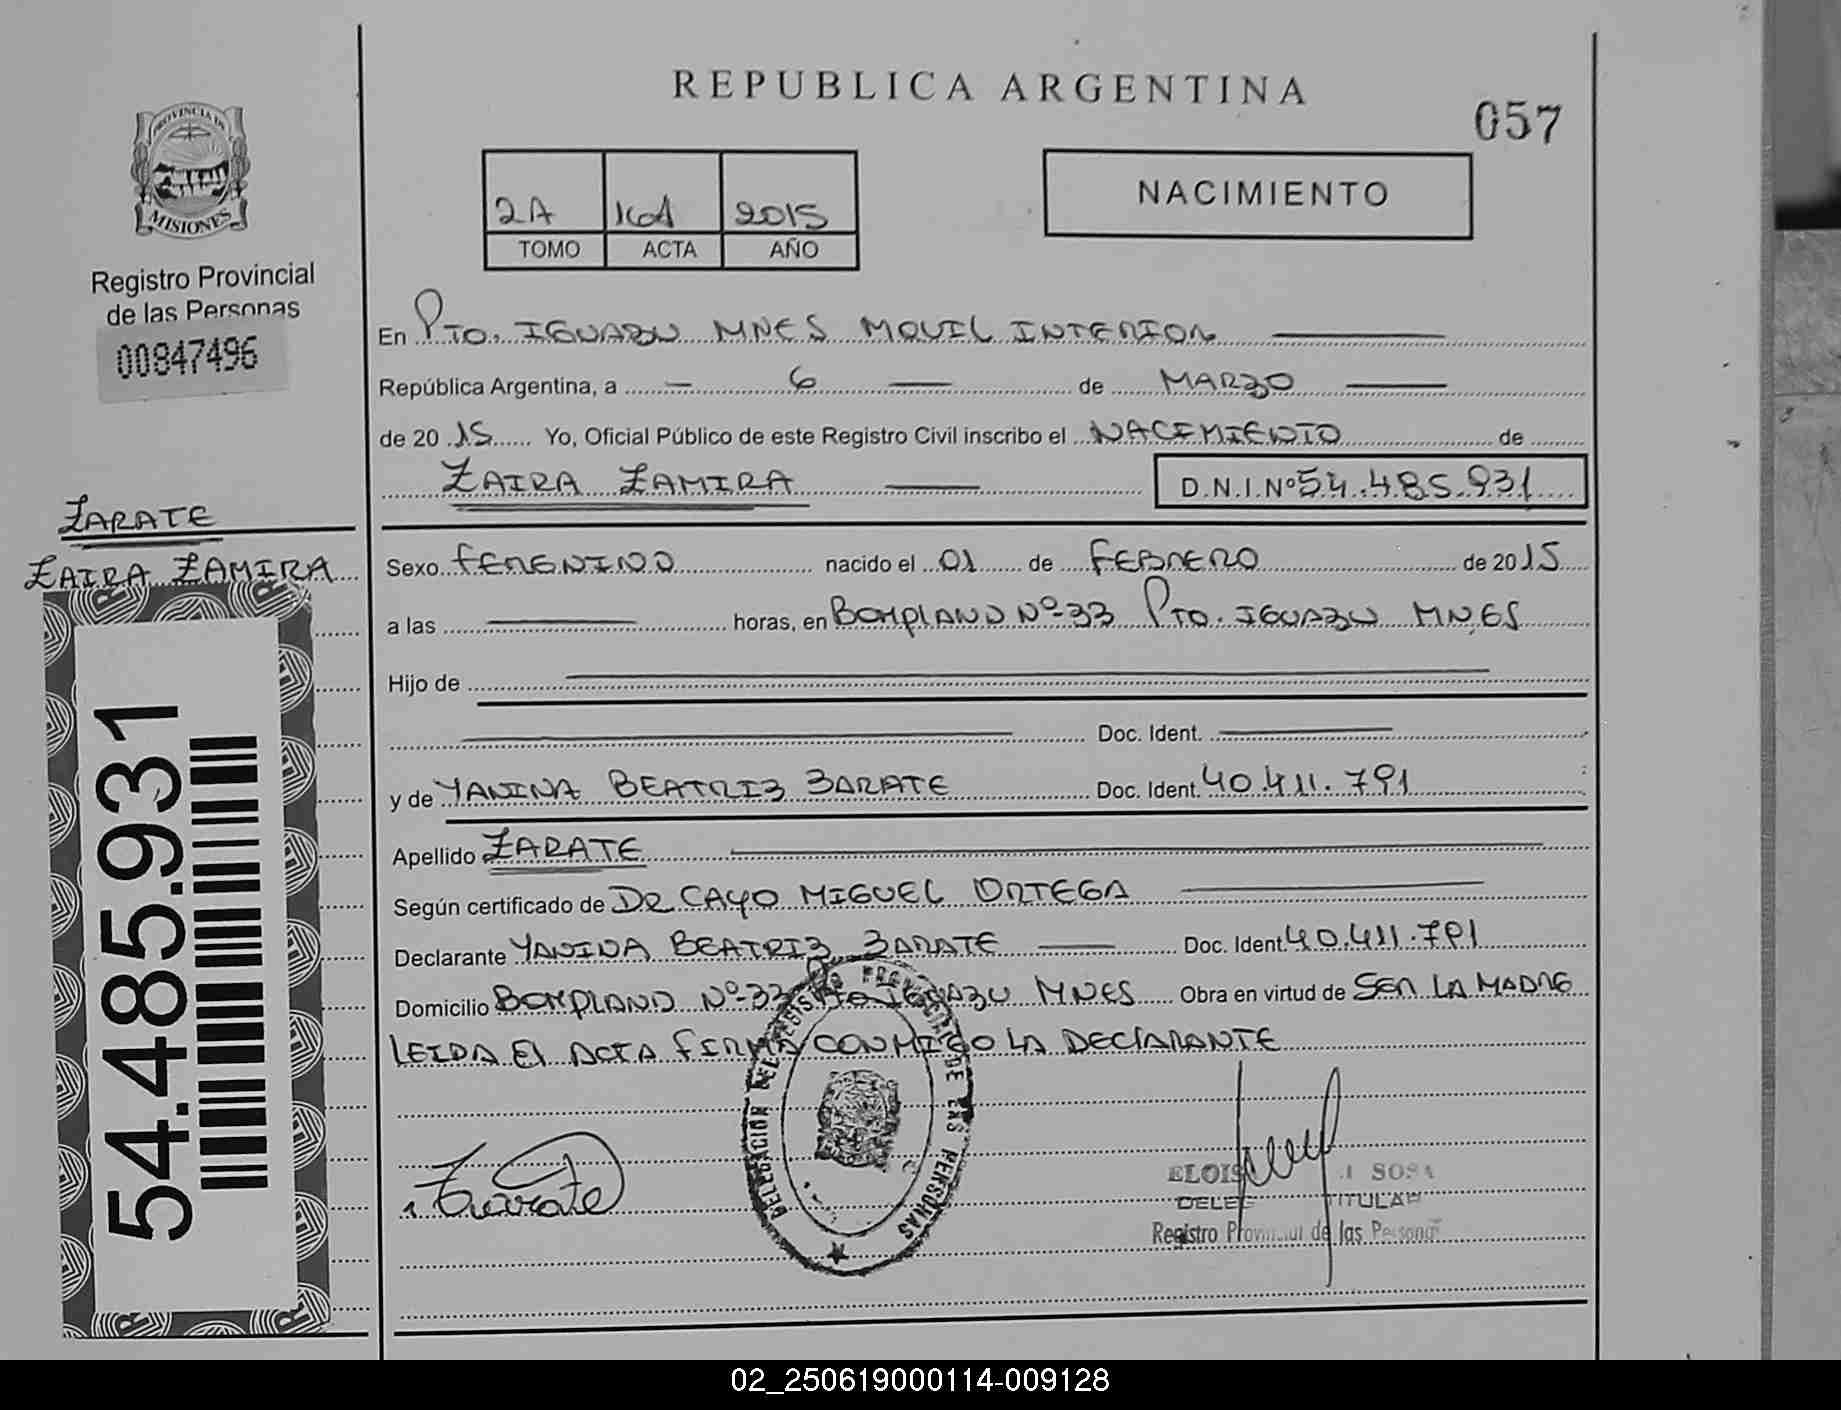 REPUBLICA ARGENTINA
057
PROVINCIA DE
MISIONES
Registro Provincial
de las Personas
00847496
2A 2015
TOMO ACTA AÑO
NACIMIENTO
En PTO. IGUAZU MNES MOVIL INTERIOR
República Argentina, a 6 de MARZO
de 2015 Yo, Oficial Público de este Registro Civil inscribo el NACIMIENTO de
ZAIRA ZAMIRA D.N.I.Nº 54.485.931
ZARATE
ZAIRA ZAMIRA
54.485.931
Sexo FEMENINO nacido el 01 de FEBRERO de 2015
a las horas, en BOMPLAND Nº 33 PTO. IGUAZU MNES
Hijo de
Doc. Ident.
y de YANINA BEATRIZ ZARATE Doc. Ident. 40.411.791
Apellido ZARATE
Según certificado de DR CAYO MIGUEL ORTEGA
Declarante YANINA BEATRIZ ZARATE Doc. Ident. 40.411.791
Domicilio BOMPLAND Nº 33 PTO IGUAZU MNES Obra en virtud de SER LA MADRE
LEIDA EL ACTA FIRMA CONMIGO LA DECLARANTE
DELEGACION DEL REGISTRO PROVINCIAL DE LAS PERSONAS
Zarate
SOSA
TITULAR
Registro Provincial de las Personas
02_250619000114-009128